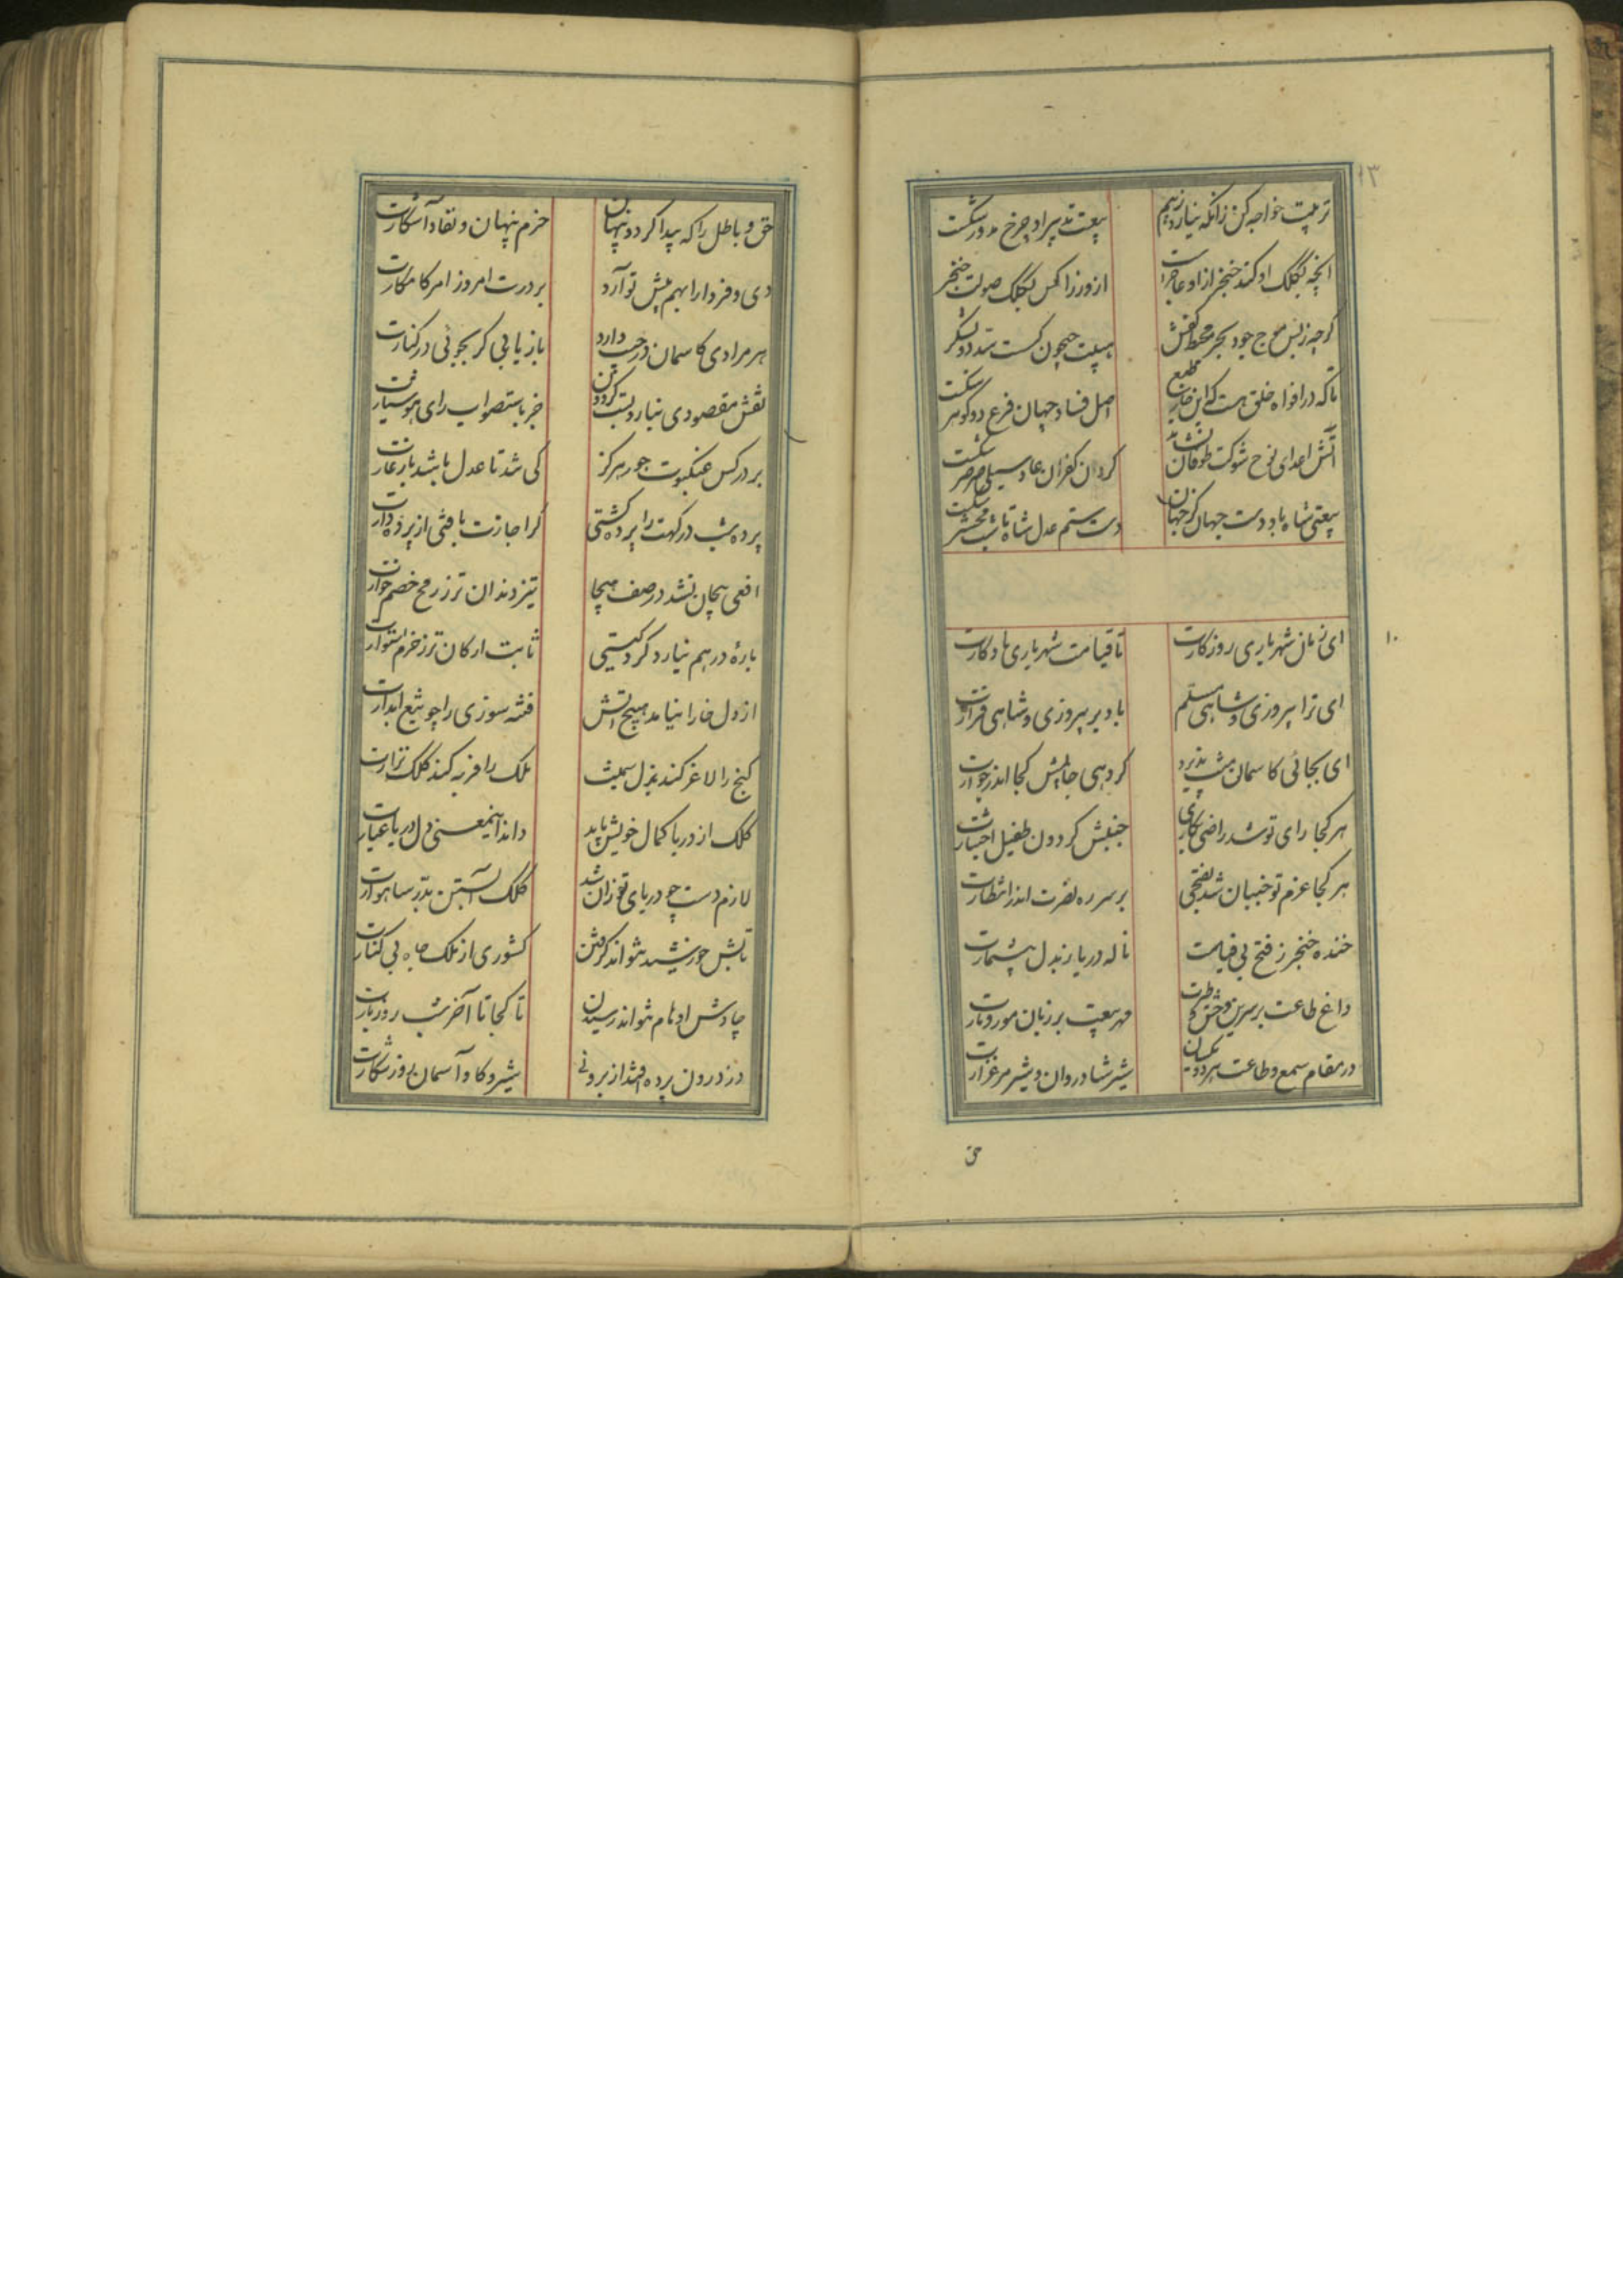 ۱۳
تربیت خواجه کن زانکه نیارد زبیم
بیعت تدبیر او چرخ مدور شکست
آنچه بکلک او کند خنجر از او عاجز است
از وزرا کس بکلک صولت خنجر
گرچه ز بس موج جود بحر محیط کفش
هیبت جیحون کست سد دو لشکر
تا که در افواه خلق هست که این خان
اصل فساد جهان فرع دو گوهر شکست
آتش اعدای نوح شوکت طوفان نشاند
گردن کفران عاد سیلی صرصر شکست
بیعتی شاه باد دست جهان کز جهان
دست ستم عدل شاه تا شب محشر شکست
۱۰
ای زمان شهریاری روزگارت
تا قیامت شهریاری باد کارت
ای ترا پیروزی و شاهی مسلم
باد بر پیروزی و شاهی قرارت
ای بجائی کاسمان منت پذیرد
گر دهی جائیش کجا اندر جوارت
هر کجا رای تو شد راضی بکاری
جنبش گردون طفیل اختیارت
هر کجا عزم تو جنبان شد بفتحی
بر سر ره نصرت اندر انتظارت
خنده خنجر ز فتح بی قیاست
ناله دریا ز بذل بیشمارت
داغ طاعت بر سرین وحش و طیرت
مهر بیعت بر زبان مور و مارت
در مقام سمع و طاعت هر دو یکسان
شیر شادروان و شیر مرغزارت
حق
حق و باطل را که پیدا کرد و پنهان
حزم پنهان و نفاذ آشکارت
دی و فردا را بهم پیش تو آرد
بر درت امروز امر کامکارت
هر مرادی کاسمان در جیب دارد
بازیابی گر بجوئی در کنارت
نقش مقصودی نیارد بست گردون
جز باستصواب رای هوشیارت
بر در کس عنکبوت جور هرگز
کی شد تا عدل باشد یار غارت
پرده شب در گهت را پرده گشتی
گر اجازت یافتی از پرده دارت
افعی پیچان نشد در صف هیجا
تیز دندان تر ز رمح خصم خوارت
باره در هم نیارد گرد گیتی
ثابت ارکان تر ز حزم استوارت
از دل خارا نیامد هیچ آتش
فتنه سوزی را چو تیغ آبدارت
گنج را لاغر کند بذل سمینت
ملک را فربه کند کلک نزارت
کلک از دریا کمال خویش یابد
داند اینمعنی دل دریا عیارت
لازم دست چو دریای تو زان شد
کلک آبستن بدر شاهوارت
تابش خورشید نتواند گرفتن
کشوری از ملک جاه بی کنارت
چاوش اوهام نتواند رسیدن
تا کجا تا آخر شب روز بارت
در درون پرده افتد از برونی
شیر و گاو آسمان روز شکارت